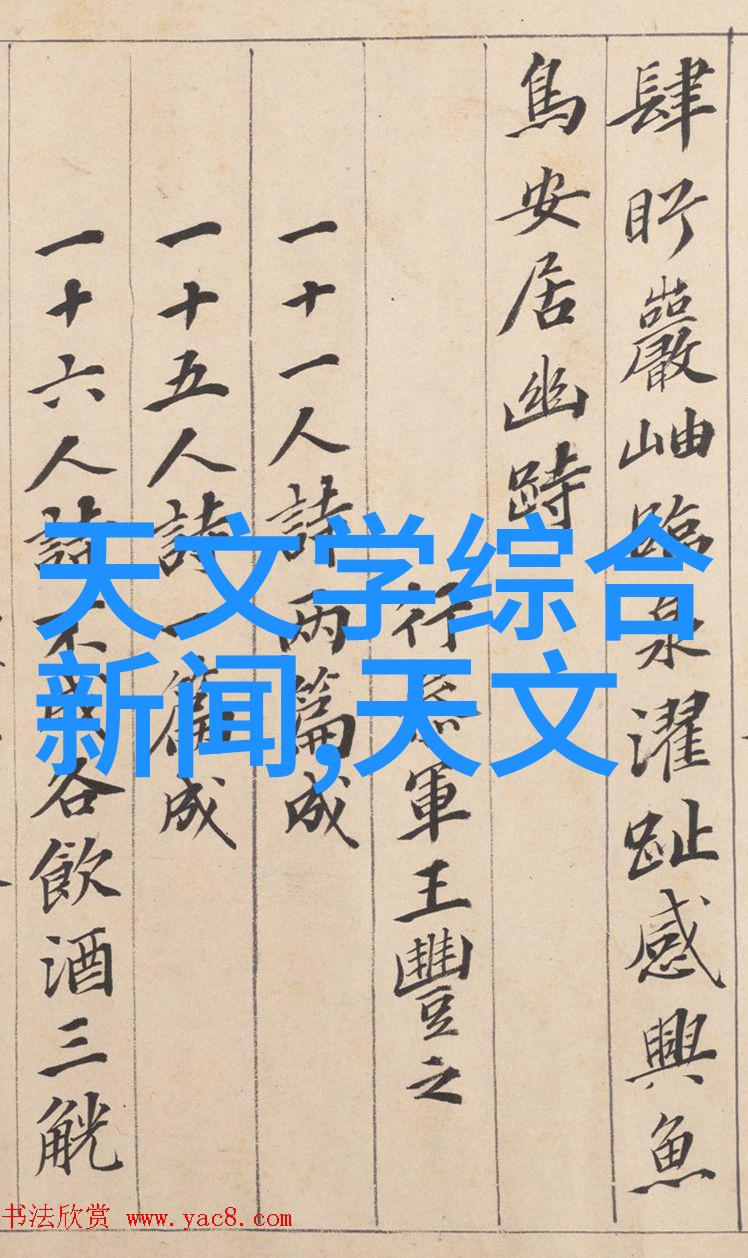 肆眄巖岫臨泉濯趾感興魚
鳥安居幽跱
行參軍王豐之
一十一人詩兩篇成
一十五人詩一篇成
一十六人詩不成各飲酒三觥
天文学综合
新闻,天文
书法欣赏 www.yac8.com